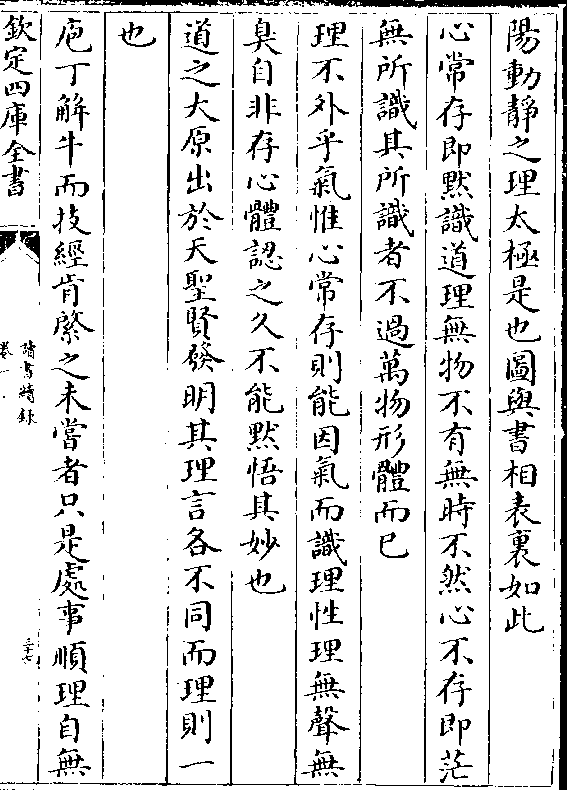 陽動靜之理太極是也圖與書相表裏如此
心常存即黙識道理無物不有無時不然心不存即茫
無所識其所識者不過萬物形體而已
理不外乎氣惟心常存則能因氣而識理性理無聲無
臭自非存心體認之久不能黙悟其妙也
道之大原出於天聖賢發明其理言各不同而理則一
也
庖丁解牛而技經肯綮之未嘗者只是處事順理自無
欽定四庫全書
讀書續錄
卷一
三十七